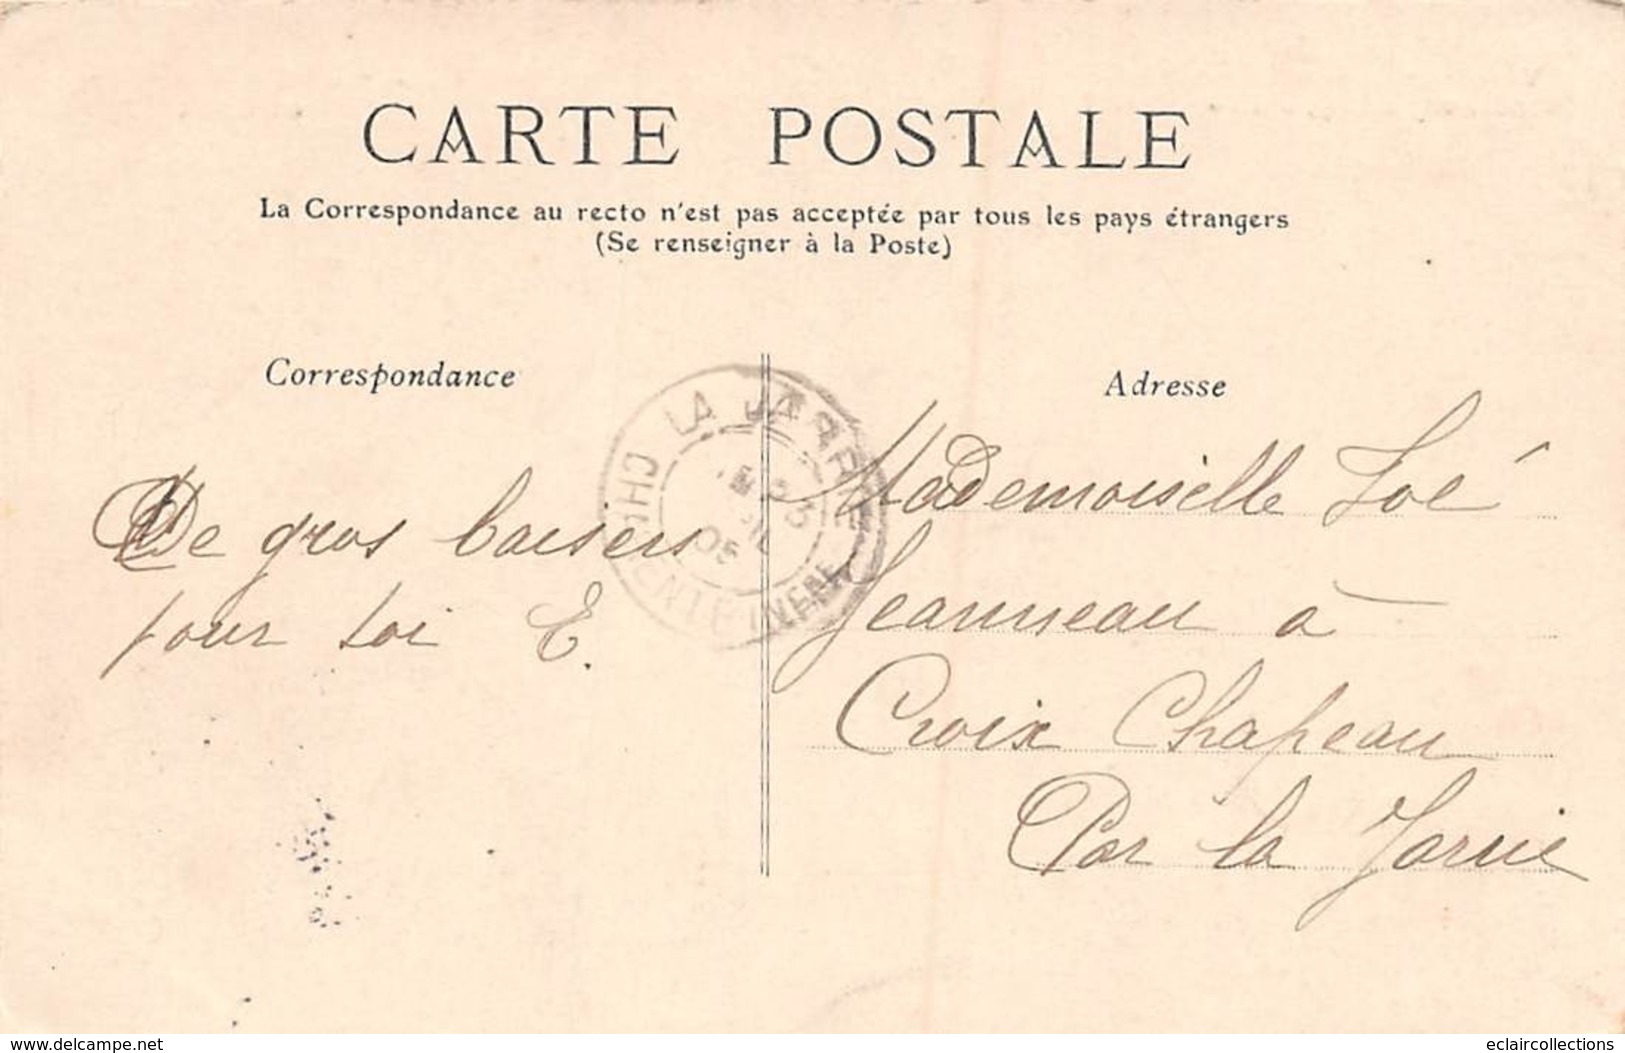 CARTE POSTALE
La Correspondance au recto n'est pas acceptée par tous les pays étrangers
(Se renseigner à la Poste)
Correspondance
Adresse
LA JARRIE
CHARENTE INFRE
05
De gros baisers
pour toi E.
Mademoiselle Zoé
Jeanneau à
Croix Chapeau
Par la Jarrie
www.delcampe.net
eclaircollections